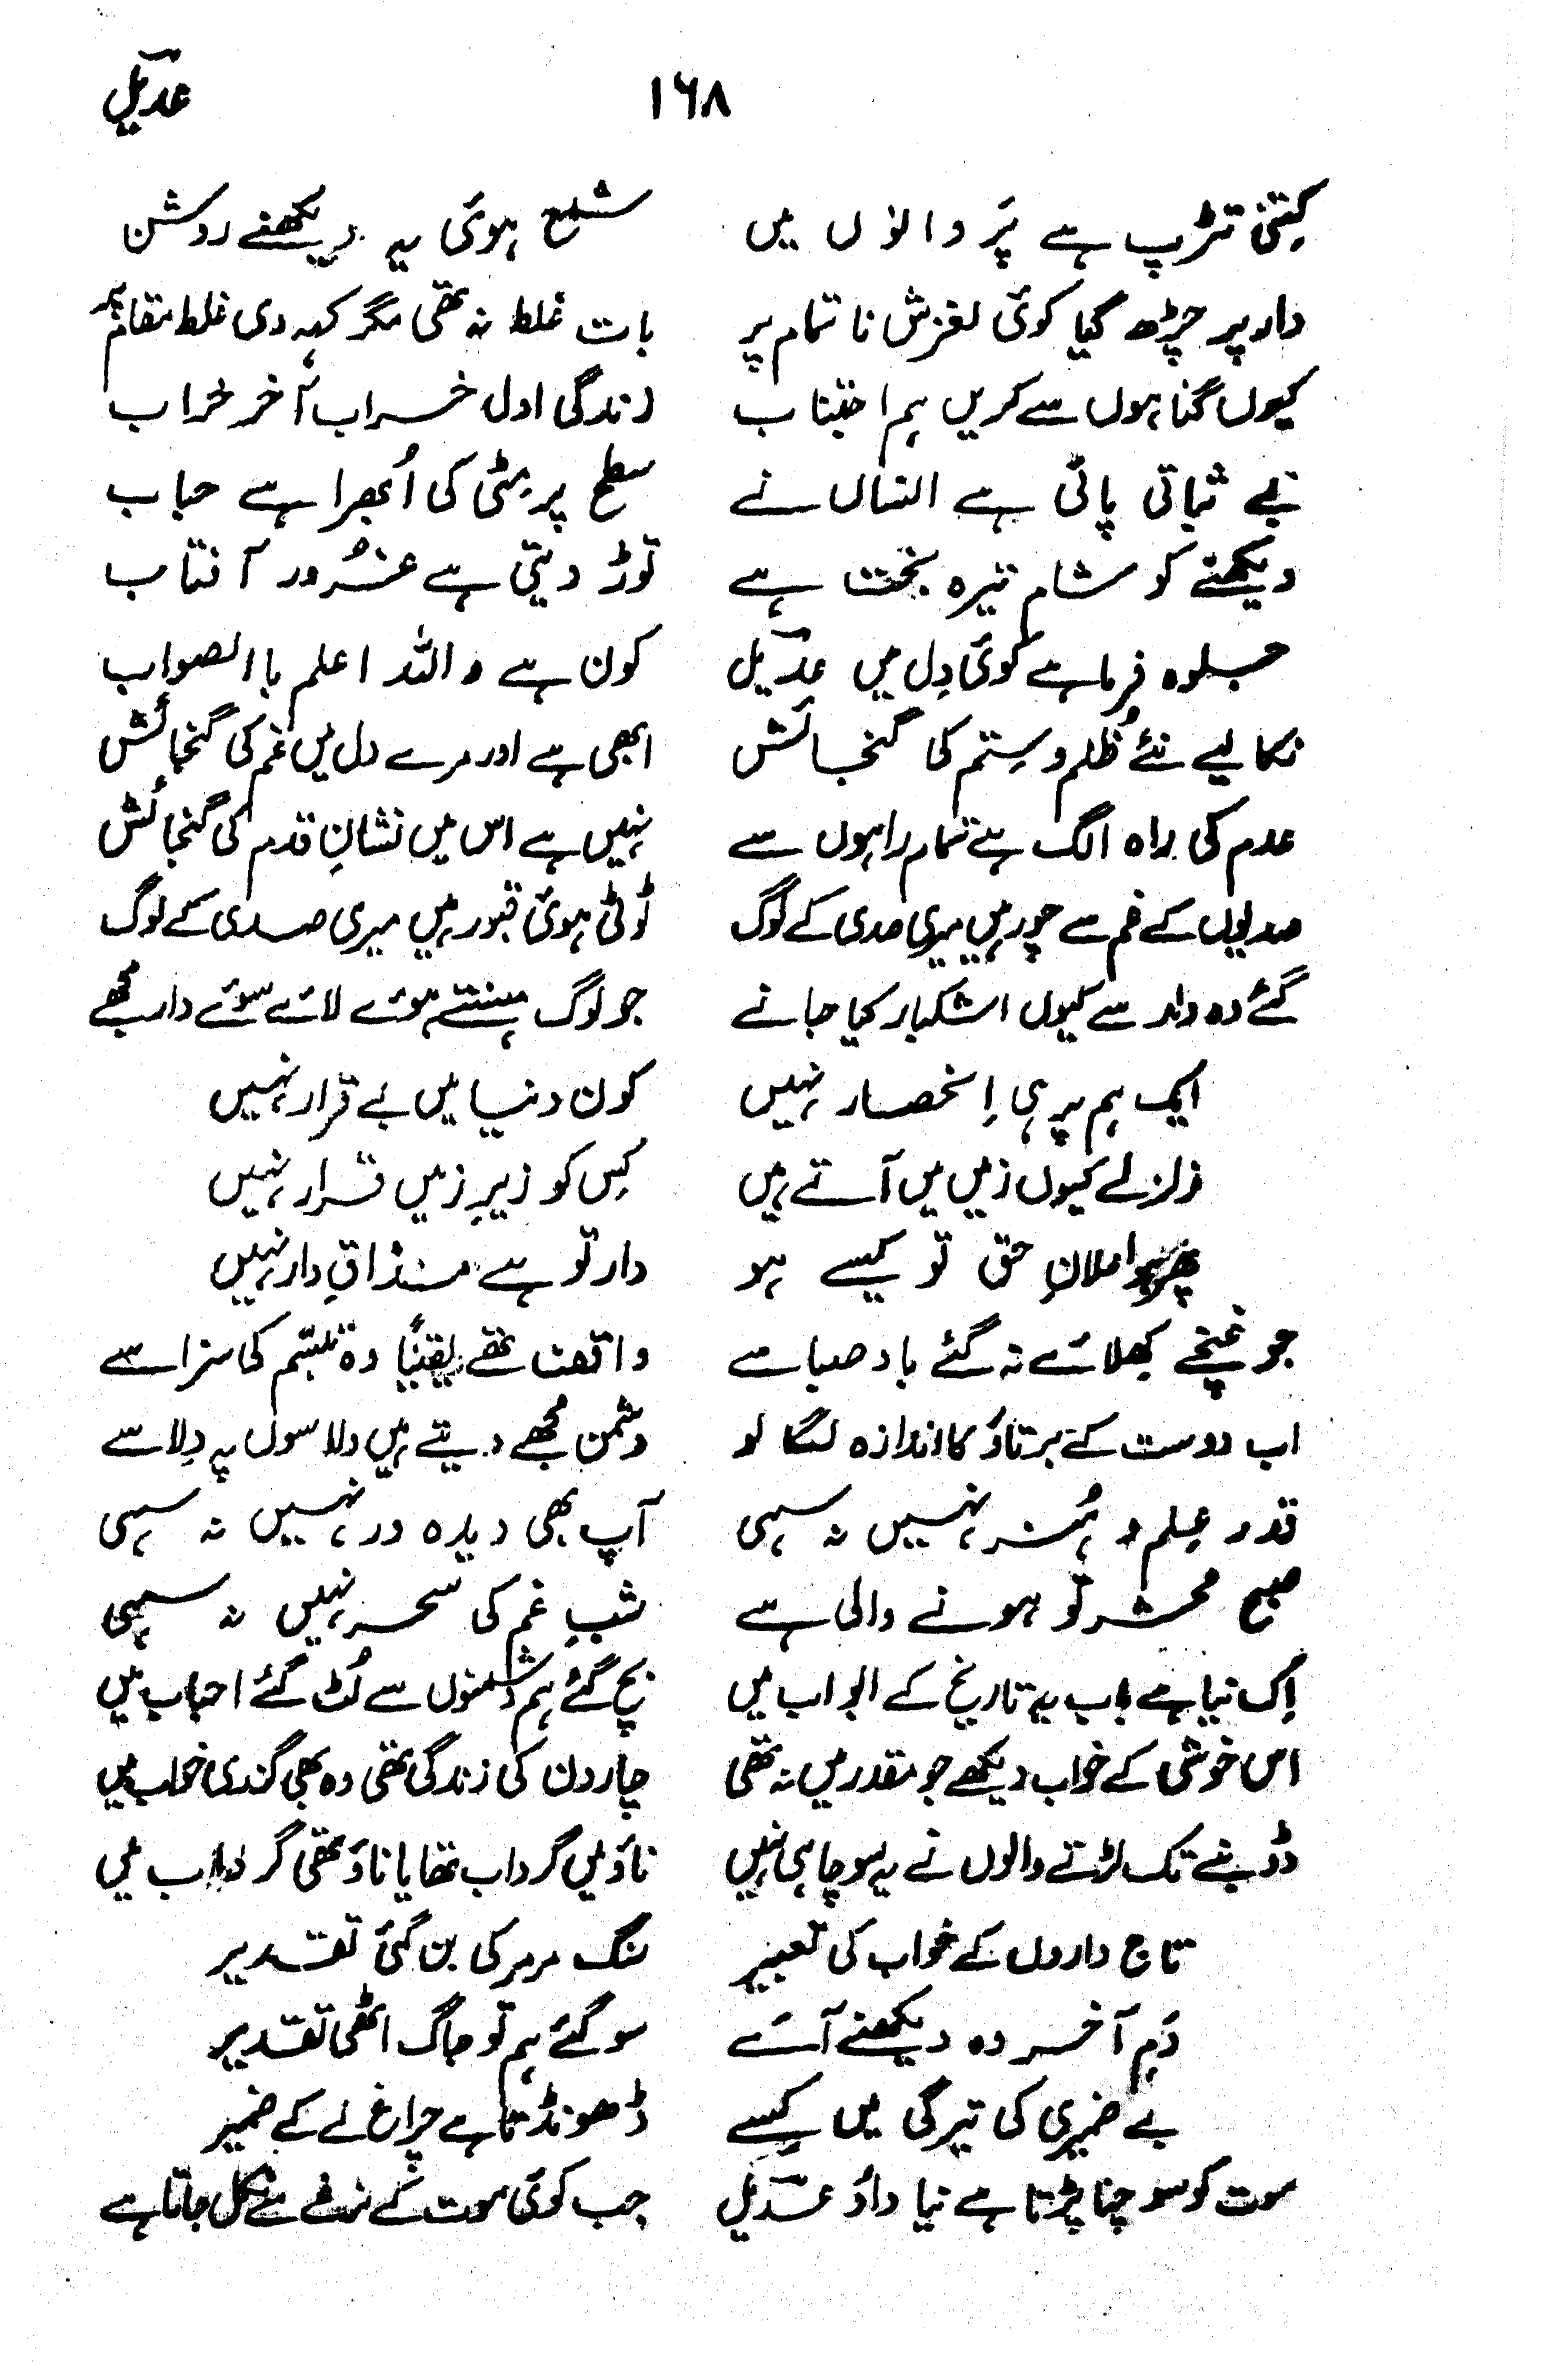 عدیل ۱۶۸
کتنی تڑپ ہے پَر دانوں میں شمع ہوئی یہ دیکھنے روشن
دار پر چڑھ گیا کوئی لغزش نا تمام پر بات غلط نہ تھی مگر کہہ دی غلط مقام پر
کیوں گناہوں سے کریں ہم اجتناب زندگی اول خراب آخر خراب
بے ثباتی پائی ہے انساں نے سطح پر مٹی کی اُبھرا ہے حباب
دیکھنے کو شام تیرہ بخت ہے توڑ دیتی ہے غُرور آفتاب
جلوہ فرما ہے کوئی دِل میں عدیل کون ہے واللہ اعلم باالصواب
نکالیے نئے ظُلم و سِتم کی گنجائش ابھی ہے اور مرے دل میں غم کی گنجائش
عدم کی راہ الگ ہے تمام راہوں سے نہیں ہے اس میں نشانِ قدم کی گنجائش
صدیوں کے غم سے چور ہیں میری صدی کے لوگ ٹوٹی ہوئی قبور ہیں میری صدی کے لوگ
گئے وہ دار سے کیوں اشکبار کیا جانے جو لوگ ہنستے ہوئے لائے سوئے دار مجھے
ایک ہم پر ہی اِنحصار نہیں کون دنیا میں بے قرار نہیں
زلزلے کیوں زمیں میں آتے ہیں کِس کو زیرِ زمیں قرار نہیں
پھر اعلانِ حق تو کیسے ہو دار تو ہے مذاقِ دار نہیں
جو غنچے کھلائے نہ گئے باد صبا سے واقف تھے یقینًا وہ تبسّم کی سزا سے
اب دوست کے برتاؤ کا اندازہ لگا لو دشمن مجھے دیتے ہیں دلاسوں پہ دِلاسے
قدر عِلم و ہُنر نہیں نہ سہی آپ بھی دیدہ ور نہیں نہ سہی
صبح محشر تو ہونے والی ہے شبِ غم کی سحر نہیں نہ سہی
اِک نیا ہے باب یہ تاریخ کے ابواب میں بچ گئے ہم دشمنوں سے لُٹ گئے احباب میں
اس خوشی کے خواب دیکھے جو مقدر میں نہ تھی چار دن کی زندگی تھی وہ بھی گذری خواب میں
ڈوبنے تک لڑنے والوں نے یہ سوچا ہی نہیں ناؤ میں گرداب تھا یا ناؤ تھی گرداب میں
تاج داروں کے خواب کی تعبیر سنگ مرمر کی بن گئی تقدیر
دَمِ آخر وہ دیکھنے آئے سو گئے ہم تو جاگ اٹھی تقدیر
بے ضمیری کی تیرگی میں کِسے ڈھونڈتا ہے چراغ لے کے ضمیر
موت کو سوچنا پڑتا ہے نیا داؤ عدیل جب کوئی موت کے نرغے سے نکل جاتا ہے